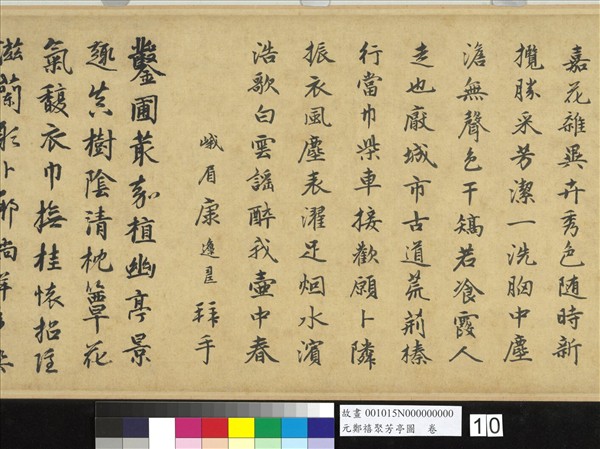 嘉花雜異卉秀色随時新
攬勝采芳潔一洗胸中塵
澹無聲色干矯若飡霞人
走也厭城市古道荒荊榛
行當巾柴車接歡願卜隣
振衣風塵表濯足烟水濱
浩歌白雲謡醉我壺中春
峨眉康 拜手
鑿圃叢嘉植幽亭景
趣真樹陰清枕簟花
氣馥衣巾撫桂懷招隱
滋蘭 卜鄰尚
故畫 001015N000000000
元鄭禧聚芳亭圖 卷
10